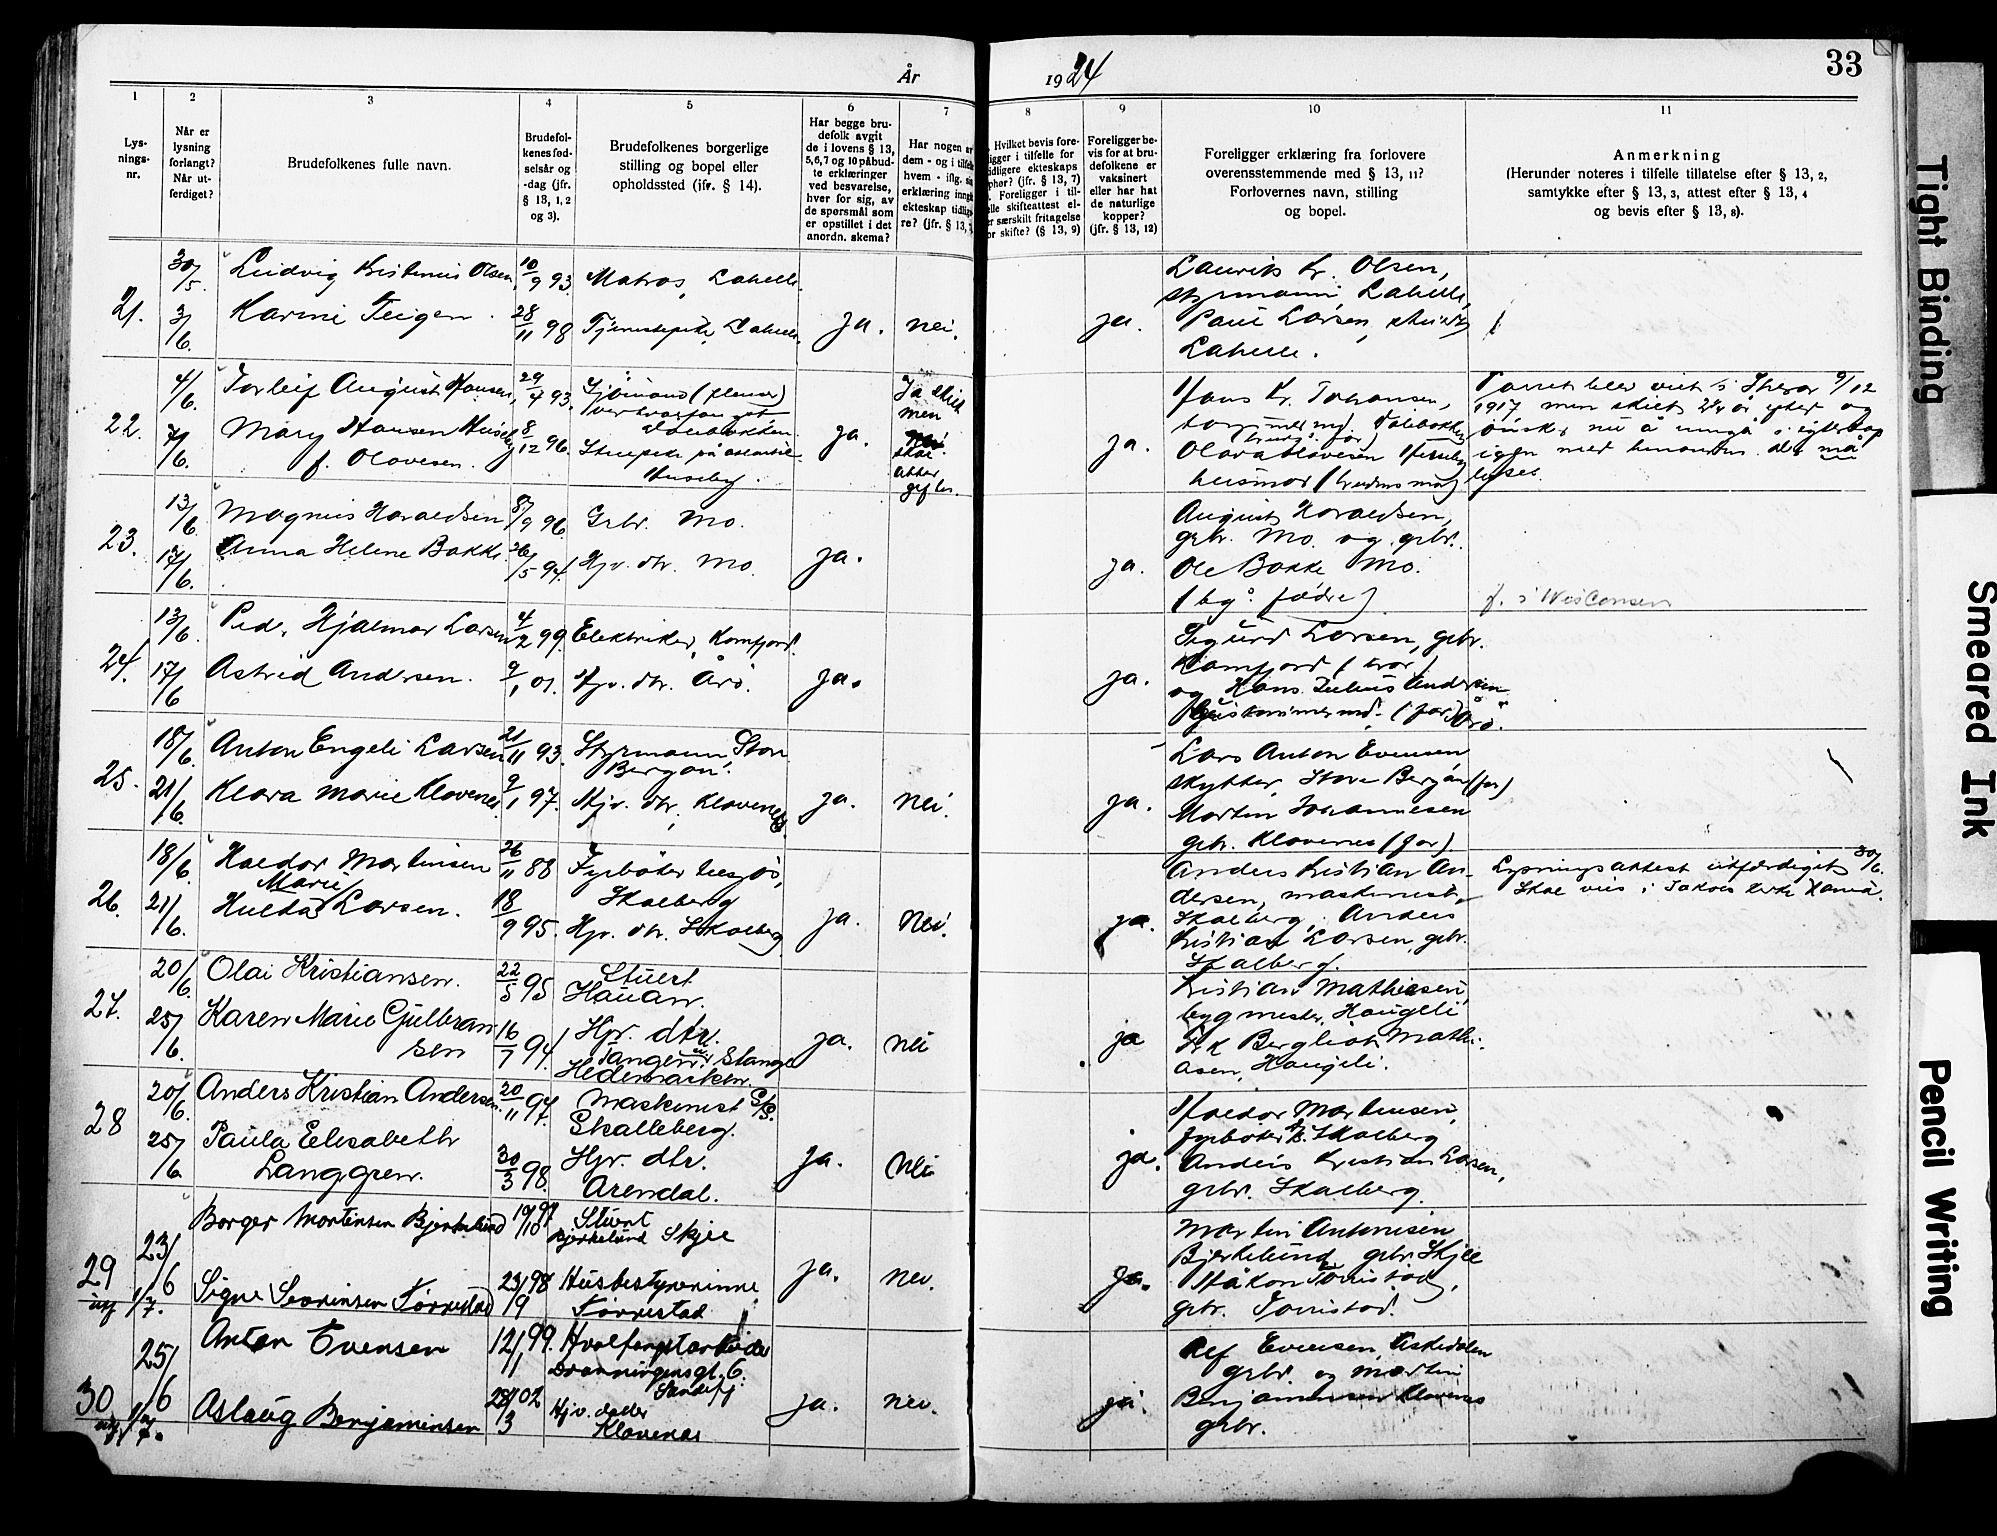 År 1924
33
1 2 3 4 5 6 7 8 9 10 11
Lys-
nings-
nr.
Når er
lysning
forlangt?
Når ut-
ferdiget?
Brudefolkenes fulle navn.
Brudefol-
kenes fød-
selsår og
-dag (jfr.
§ 13, 1, 2
og 3).
Brudefolkenes borgerlige
stilling og bopel eller
opholdssted (jfr. § 14).
Har begge bru-
defolk avgit
de i lovens § 13,
5, 6, 7 og 10 påbud-
te erklæringer
ved besvarelse,
hver for sig, av
de spørsmål som
er opstillet i det
anordn. skema?
Har nogen
dem - og i tilfelle
hvem - iflg.
erklæring inng
ekteskap tidlig
re? (jfr. § 13,
Hvilket bevis fore-
ligger i tilfelle for
tidligere ekteskaps
ophør? (jfr. § 13, 7)
Foreligger i til-
elle skifteattest el-
r særskilt fritagelse
or skifte? (§ 13, 9)
Foreligger be-
vis for at bru-
defolkene er
vaksinert
eller har hat
de naturlige
kopper?
(jfr. § 13, 12)
Foreligger erklæring fra forlovere
overensstemmende med § 13, 11?
Forlovernes navn, stilling
og bopel.
Anmerkning
(Herunder noteres i tilfelle tillatelse efter § 13, 2,
samtykke efter § 13, 3, attest efter § 13, 4
og bevis efter § 13, 8).
21.
30/5.
3/6.
Ludvig Olsen,
Karine Teigen.
10/9 93.
28/11 98
Matros, Lahelle.
Lahelle.
ja.
nei.
ja.
Laurits Kr. Olsen,
styrmann, Lahelle,
Larsen,
Lahelle.
22.
4/6.
7/6.
Torleif August Hansen,
Mary Hansen Huseby
f. Olavesen.
29/4 93.
8/12 96.
Huseby.
ja.
Ja skilt
men
skal
atter
giftes.
ja.
Hans Kr. Johansen,
Olava Olavesen Huseby
husmor (brudens mor)
Parret blev viet i 9/12
1917 men skilt 2 1/2 år efter og
ønsker nu å inngå i egteskap
igen med hinanden. de må
lyses.
23.
13/6.
17/6.
Magnus Haraldsen
Anna Helene Bakke.
8/9 96
26/5 94.
Grbr. Mo.
Hjv. dtr. Mo.
ja.
ja.
August Haraldsen,
grbr. Mo. og grbr.
Ole Bakke Mo.
(beg: fædre)
f. i Wisconsen
24.
13/6.
17/6
Peder Hjalmar Larsen
Astrid Andersen.
4/2 99.
9/1 01.
Elektriker, Kamfjord.
Hjv. dtr. Årø.
ja.
ja.
Sigurd Larsen, grbr.
Kamfjord (bror)
og Hans Julius Andersen
(far) Årø.
25.
18/6.
21/6.
Anton Engeli Larsen
Klara Marie Klavenes.
21/11 93.
9/1 97.
Styrmann, Store
Bergan.
Hjv. dtr. Klavenes.
ja.
nei.
ja.
Lars Anton Evensen
skytter, Store Bergan (far)
Martin Johannesen
grbr. Klavenes (far).
26.
18/6.
21/6.
Haldor Martinsen
Hulda Marie Larsen.
26/11 88
18/9 95.
Fyrbøter
Skalberg
Hjv. dtr. Skalberg
ja.
nei.
ja.
Anders Kristian An-
dersen, maskinist,
Skalberg, Anders
Kristian Larsen, grbr.
Skalberg.
Lysningsattest utferdiget 30/6.
Skal vies i Jakobs kirke
27.
20/6.
25/6.
Olai Kristiansen.
Karen Marie Gulbran
sen
22/5 95
16/7 94.
Stuert
Hauan.
Hjv. dtr.
Tangen, Stange
Hedemarken.
ja.
nei
ja
Kristian Mathiesen,
bygmester, Haugeli
Frk Bergliot Mathi-
asen, Haugeli.
28
20/6.
25/6
Anders Kristian Andersen.
Paula Elisabeth
Langgren.
20/11 97.
30/3 98.
Maskinist
Skalleberg.
Hjv. dtr.
Arendal.
ja.
nei
ja.
Haldor Martinsen,
fyrbøter, Skalberg
Anders Kristian Larsen,
grbr. Skalberg.
29
23/6
1/7.
Borger Mortensen Bjerkelund
Signe Sørensen Torrestad
19/10 97
23/9 98
Stuert
Bjerkelund Skjee
Husbestyrerinne
Torrestad
ja.
nei.
ja.
Martin Antonisen
Bjerkelund, grbr. Skjee
Håkon Torrestad,
grbr. Torrestad.
30
25/6
Anton Evensen
Aslaug Benjaminsen
12/11 99.
28/3 02
Hvalfangstarbeider
Dronningensgt. 6.
Sandefj
Hjv. datter
Klavenes
ja.
nei.
ja.
Alf Evensen, Askedalen
grbr. og Martin
Benjaminsen Klavenes
grbr.
Tight Binding
Smeared Ink
Pencil Writing